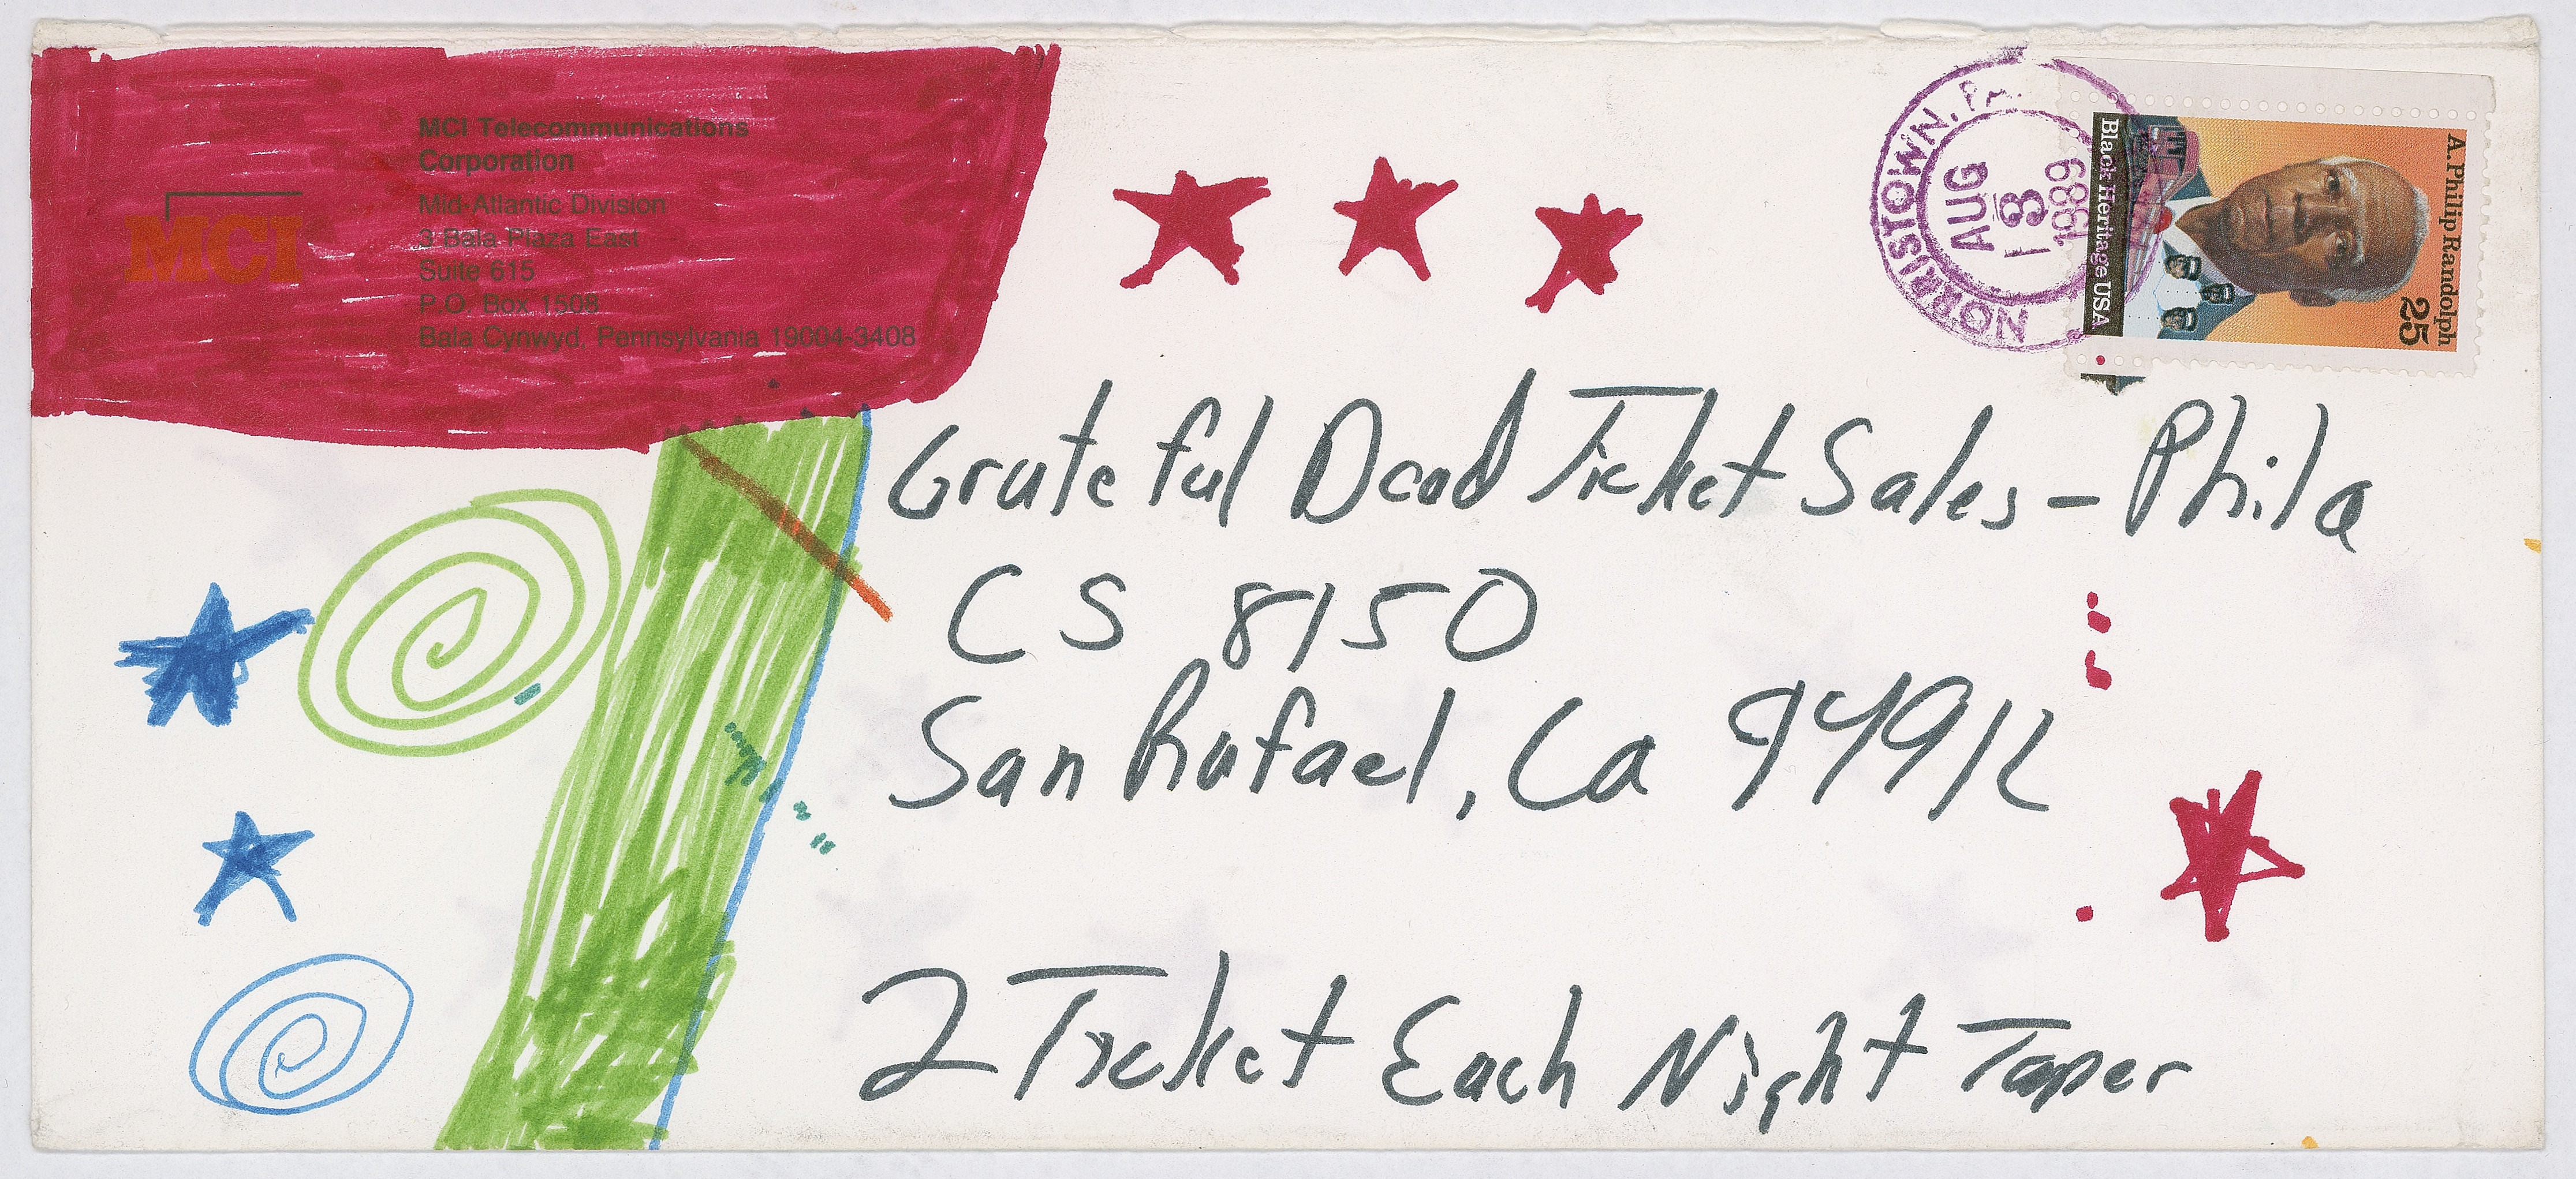 MCI
MCI Telecommunications
Corporation
Mid-Atlantic Division
3 Bala Plaza East
Suite 615
P.O. Box 1508
Bala Cynwyd, Pennsylvania 19004-3408
NORRISTOWN, PA.
AUG
18
1989
A. Philip Randolph
25
Black Heritage USA
Grateful Dead Ticket Sales - Phila
CS 8150
San Rafael, Ca 94912
2 Ticket Each Night Taper